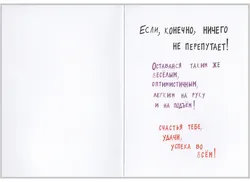 ЕСЛИ, КОНЕЧНО, НИЧЕГО
НЕ ПЕРЕПУТАЕТ!
ОСТАВАЙСЯ ТАКИМ ЖЕ
ВЕСЁЛЫМ,
ОПТИМИСТИЧНЫМ,
ЛЁГКИМ НА РУКУ
И НА ПОДЪЁМ!
СЧАСТЬЯ ТЕБЕ,
УДАЧИ,
УСПЕХА ВО
ВСЁМ!